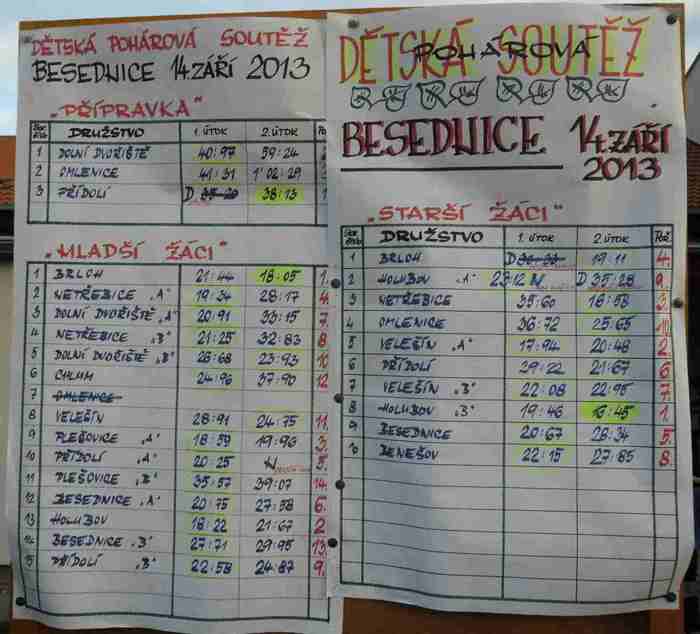 DĚTSKÁ POHÁROVÁ SOUTĚŽ
BESEDNICE 14 ZÁŘÍ 2013
„PŘÍPRAVKA"
DRUŽSTVO 1. ÚTOK 2. ÚTOK
1 DOLNÍ DVOŘIŠTĚ 40:97 59:24
2 OMLENICE 41:31 1'02:29
3 PŘÍDOLÍ D 38:13
„MLADŠÍ ŽÁCI"
1 BRLOH 21:44 18:05 1.
2 NETŘEBICE „A" 19:34 28:17 4.
3 DOLNÍ DVOŘIŠTĚ „A" 20:91 33:15 7.
4 NETŘEBICE „B" 21:25 32:83 8
5 DOLNÍ DVOŘIŠTĚ „B" 28:68 23:93 10
6 CHLUM 24:96 37:90 12
7 OMLENICE
8 VELEŠÍN 28:91 24:75 11.
9 PLEŠOVICE „A" 18:59 19:96 3.
10 PŘÍDOLÍ „A" 20:25 N 5.
11 PLEŠOVICE „B" 35:57 39:07 14.
12 BESEDNICE „A" 20:75 27:58 6.
13 HOLUBOV 18:22 21:67 2
14 BESEDNICE „B" 27:71 29:95 13.
15 PŘÍDOLÍ „B" 22:58 24:87 9.
DĚTSKÁ POHÁROVÁ SOUTĚŽ
BESEDNICE 14 ZÁŘÍ
2013
„STARŠÍ ŽÁCI"
DRUŽSTVO 1. ÚTOK 2. ÚTOK Poř.
1 BRLOH D 19:11 4.
2 HOLUBOV „A" 23:12 N D 35:28 9.
3 NETŘEBICE 35:60 18:58 3.
4 OMLENICE 36:72 25:65 10.
5 VELEŠÍN „A" 17:94 20:48 2.
6 PŘÍDOLÍ 29:22 21:67 6
7 VELEŠÍN „B" 22:08 22:95 7.
8 HOLUBOV „B" 19:46 16:45 1.
9 BESEDNICE 20:67 28:34 5.
10 BENEŠOV 22:15 27:85 8.